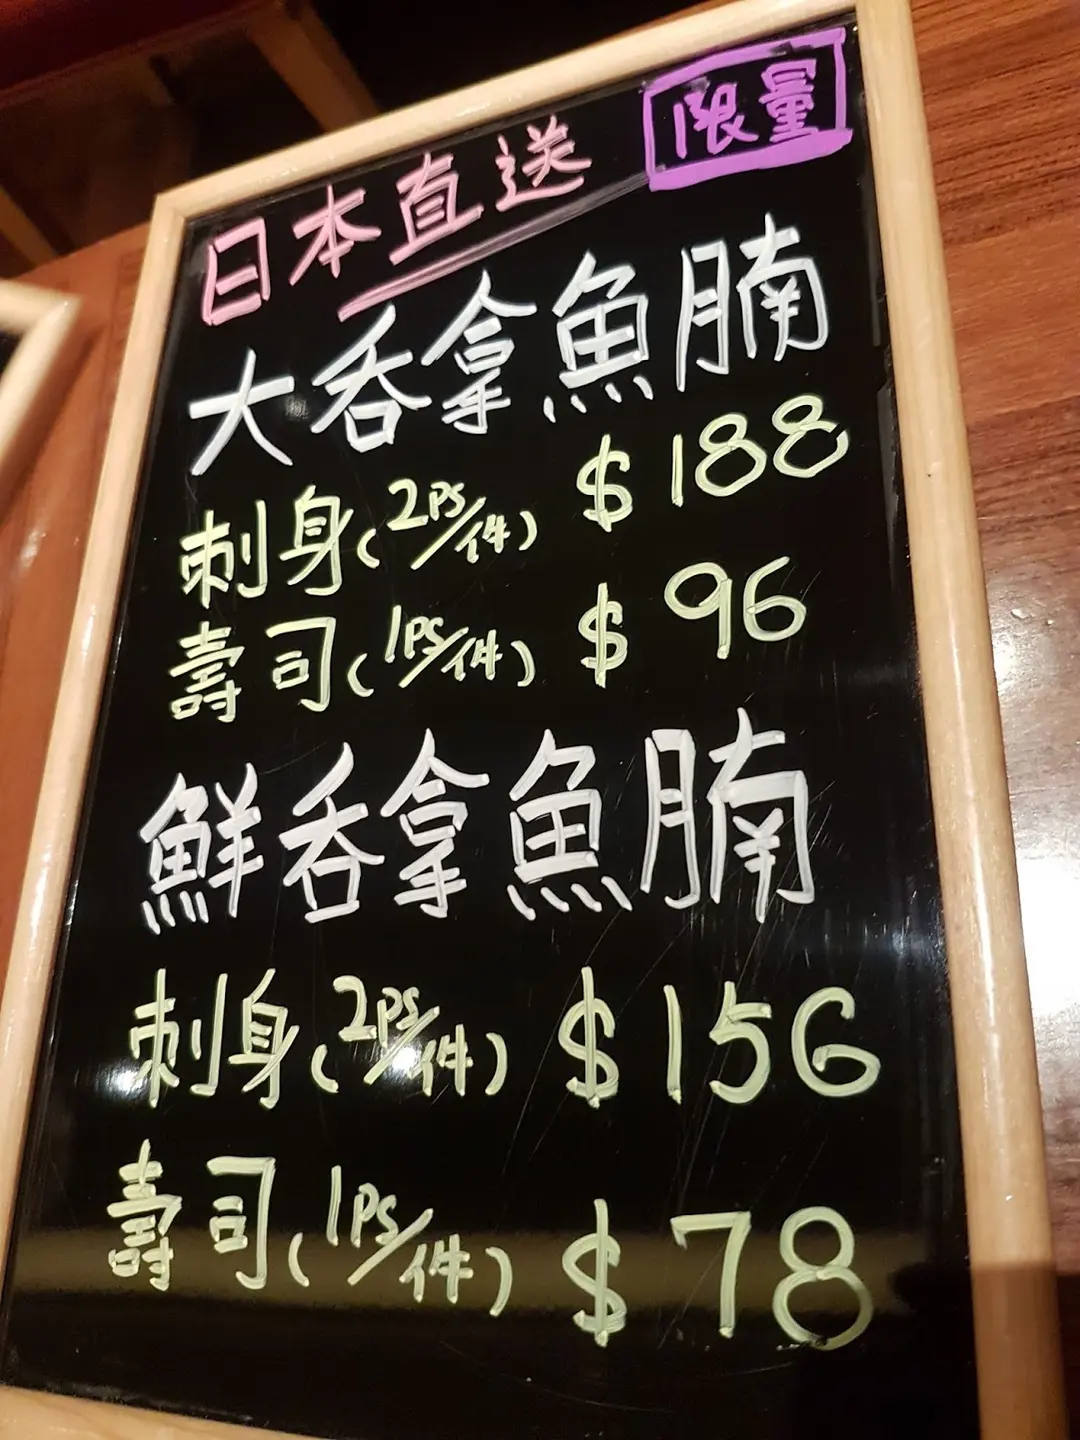 日本直送 限量
大吞拿魚腩
刺身(2PS/件) $188
壽司(1PS/件) $96
鮮吞拿魚腩
刺身(2PS/件) $156
壽司(1PS/件) $78